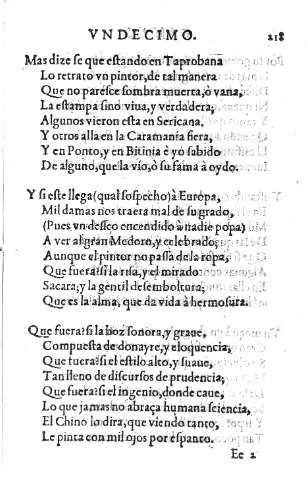 VNDECIMO. 218
Mas dize se que estando en Taprobana
Lo retrato vn pintor, de tal manera
Que no paresce sombra muerta, ò vana,
La estampa sino viua, y verdadera;
Algunos vieron esta en Sericana.
Y otros alla en la Caramania fiera,
Y en Ponto, y en Bitinia è yo sabido
De alguno, que la vio, ò su fama à oydo.
Y si este llega (qual sospecho) à Europa,
Mil damas nos traera mal de su grado,
(Pues vn desseo encendido à nadie popa)
A ver al gran Medoro, y celebrado;
Aunque el pintor no passa de la ropa,
Que fuera? si la risa, y el mirado
Sacara; y la gentil desemboltura;
Que es la alma, que da vida à hermosura.
Que fuera? si la boz sonora, y graue,
Compuesta de donayre, y eloquencia;
Que fuera? si el estilo alto, y suaue,
Tan lleno de discursos de prudencia;
Que fuera? si el ingenio, donde caue,
Lo que jamas no abraça humana sciencia,
El Chino lo dira, que viendo tanto,
Le pinta con mil ojos por espanto.
Ee 2